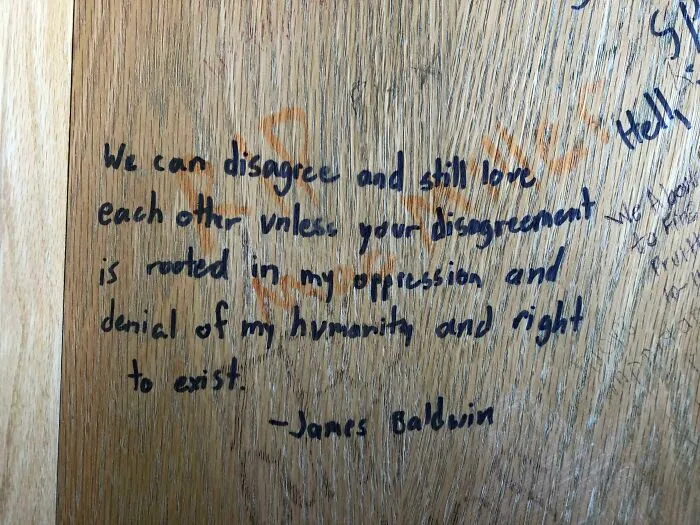 We can disagree and still love
each other unless your disagreement
is rooted in my oppression and
denial of my humanity and right
to exist.
-James Baldwin
Hell,
We A
to